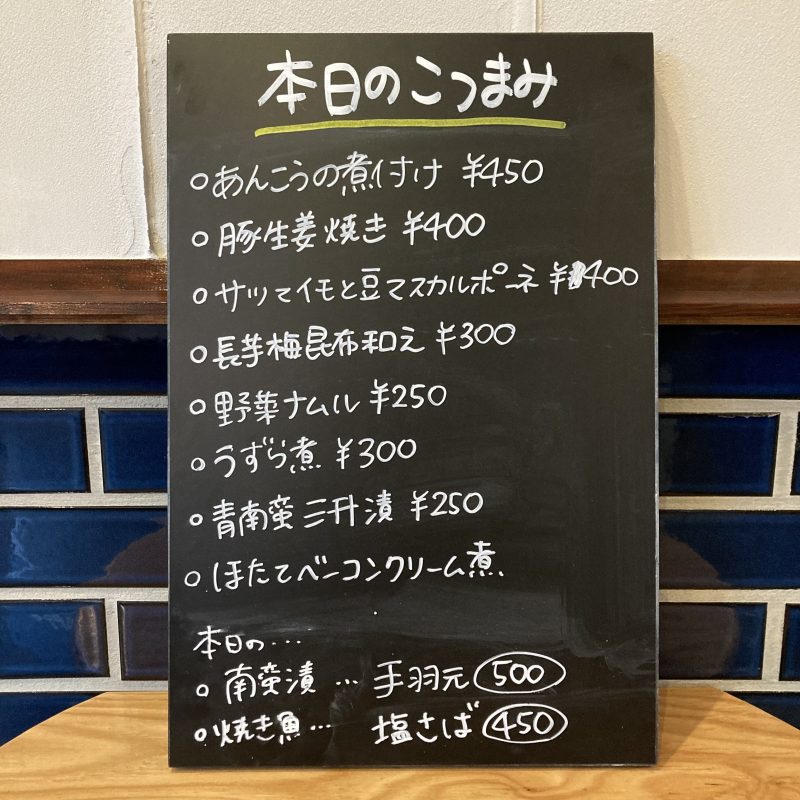 本日のこつまみ
○あんこうの煮付け ¥450
○豚生姜焼き ¥400
○サツマイモと豆マスカルポーネ ¥400
○長芋梅昆布和え ¥300
○野菜ナムル ¥250
○うずら煮 ¥300
○青南蛮三升漬 ¥250
○ほたてベーコンクリーム煮
本日の…
○南蛮漬 … 手羽元 500
○焼き魚… 塩さば 450